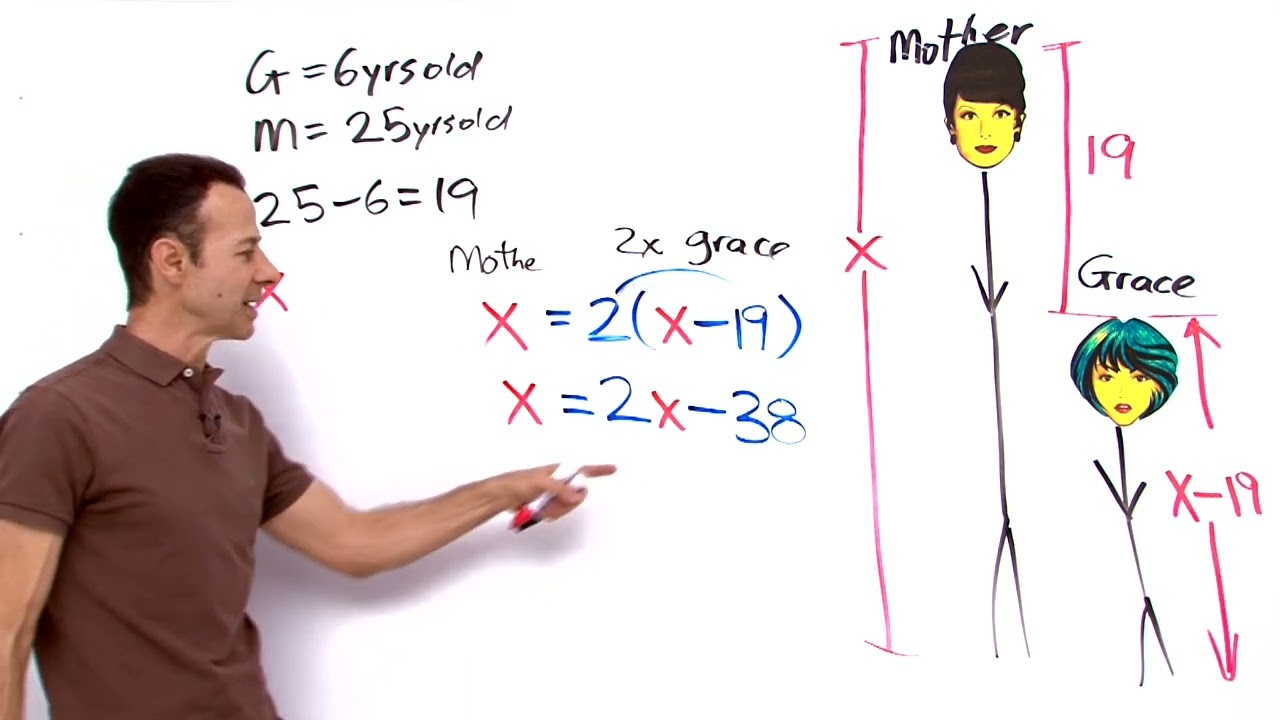 G = 6yrsold
M = 25yrsold
25-6=19
x
Mothe 2x grace
x = 2(x-19)
x = 2x-38
Mother
19
x
Grace
x-19